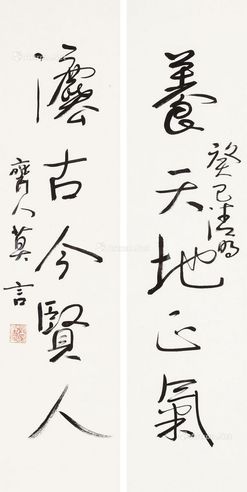 癸巳清明
養天地正氣
灋古今賢人
齊人莫言